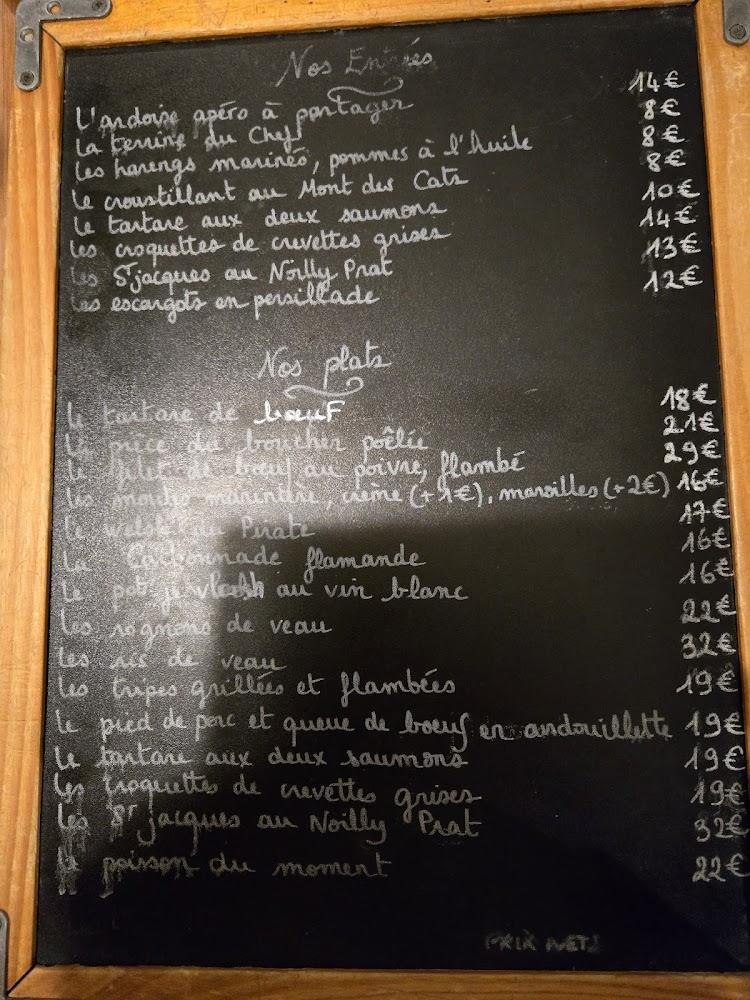 Nos Entrées
L'ardoise apéro à partager 14€
La terrine du Chef 8€
Les harengs marinés, pommes à l'huile 8€
Le croustillant au Mont des Cats 8€
Le tartare aux deux saumons 10€
Les croquettes de crevettes grises 14€
Les St jacques au Noilly Prat 13€
Les escargots en persillade 12€
Nos plats
Le tartare de bœuf 18€
La pièce du boucher poêlée 21€
Le filet de bœuf au poivre, flambé 29€
Les moules marinière, crème (+1€), maroilles (+2€) 16€
Le welsh du Pirate 17€
La Carbonnade flamande 16€
Le pot je vleesh au vin blanc 16€
Les rognons de veau 22€
Les ris de veau 32€
Les tripes grillées et flambées 19€
Le pied de porc et queue de bœuf en andouillette 19€
Le tartare aux deux saumons 19€
Les croquettes de crevettes grises 19€
Les St jacques au Noilly Prat 32€
Le poisson du moment 22€
PRIX NETS